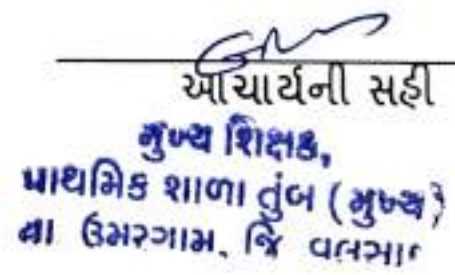 આચાર્યની સહી
મુખ્ય શિક્ષક,
પ્રાથમિક શાળા તુંબ (મુખ્ય)
તા ઉમરગામ. જિ વલસાડ